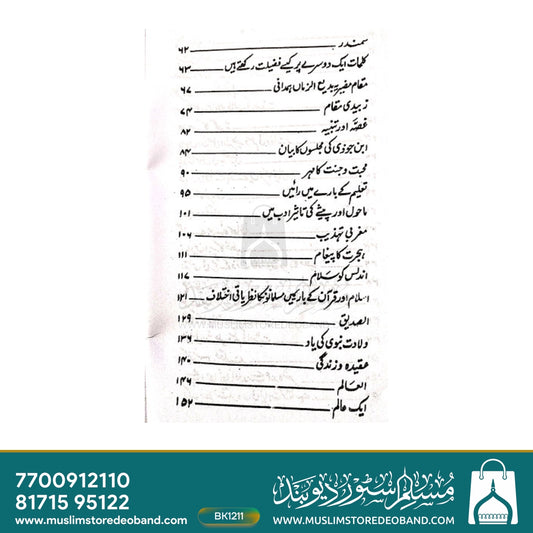 سمندر ۶۲
کلمات ایک دوسرے پر کیسے فضیلت رکھتے ہیں ۶۳
مقام مضیریہ بدیع الزماں ہمدانی ۶۷
زبیدی مقام ۷۴
غصّہ اور تنبیہ ۸۲
ابن جوزی کی مجلسوں کا بیان ۸۴
محبت و جنت کا مہر ۹۰
تعلیم کے بارے میں رائیں ۹۵
ماحول اور پیشے کی تاثیر ادب میں ۱۰۱
مغربی تہذیب ۱۰۶
ہجرت کا پیغام ۱۱۱
اندلس کو سلام ۱۱۷
اسلام اور قرآن کے بارے میں مسلمانوں کا نظریاتی اختلاف ۱۲۱
الصدیق ۱۲۹
ولادت نبوی کی یاد ۱۳۶
عقیدہ و زندگی ۱۴۰
العالم ۱۴۶
ایک عالم ۱۵۲
WWW.MUSLIMSTOREDEOBAND.COM
7700912110
81715 95122
www.muslimstoredeoband.com
BK1211
مسلم سٹور دیوبند
WWW.MUSLIMSTOREDEOBAND.COM